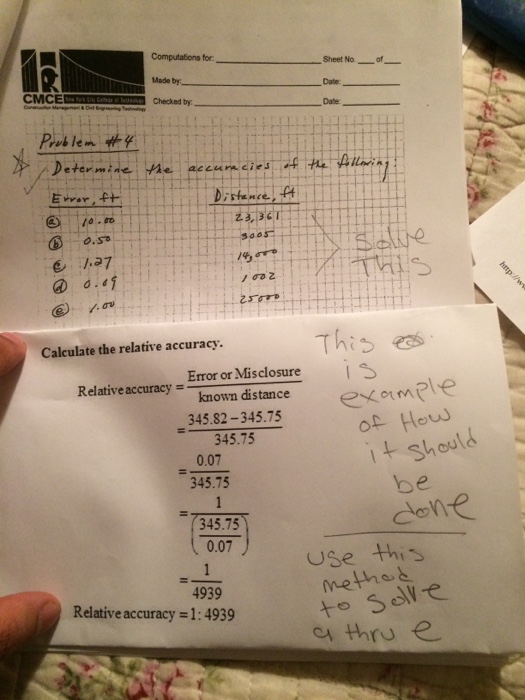 Computations for:
Sheet No. of
Made by:
Date:
CMCE New York City College of Technology
Construction Management & Civil Engineering Technology
Checked by:
Date:
Problem #4
Determine the accuracies of the following:
Error, ft Distance, ft
a 10.00 23,361
b 0.50 3005
c 1.27 14,000
d 0.09 1002
e 1.00 25000
Solve
This
http://w
Calculate the relative accuracy.
Relative accuracy = Error or Misclosure
known distance
= 345.82 – 345.75
345.75
= 0.07
345.75
= 1
(345.75
0.07)
= 1
4939
Relative accuracy = 1: 4939
This
is
example
of How
it should
be
done
use this
method
to solve
a thru e